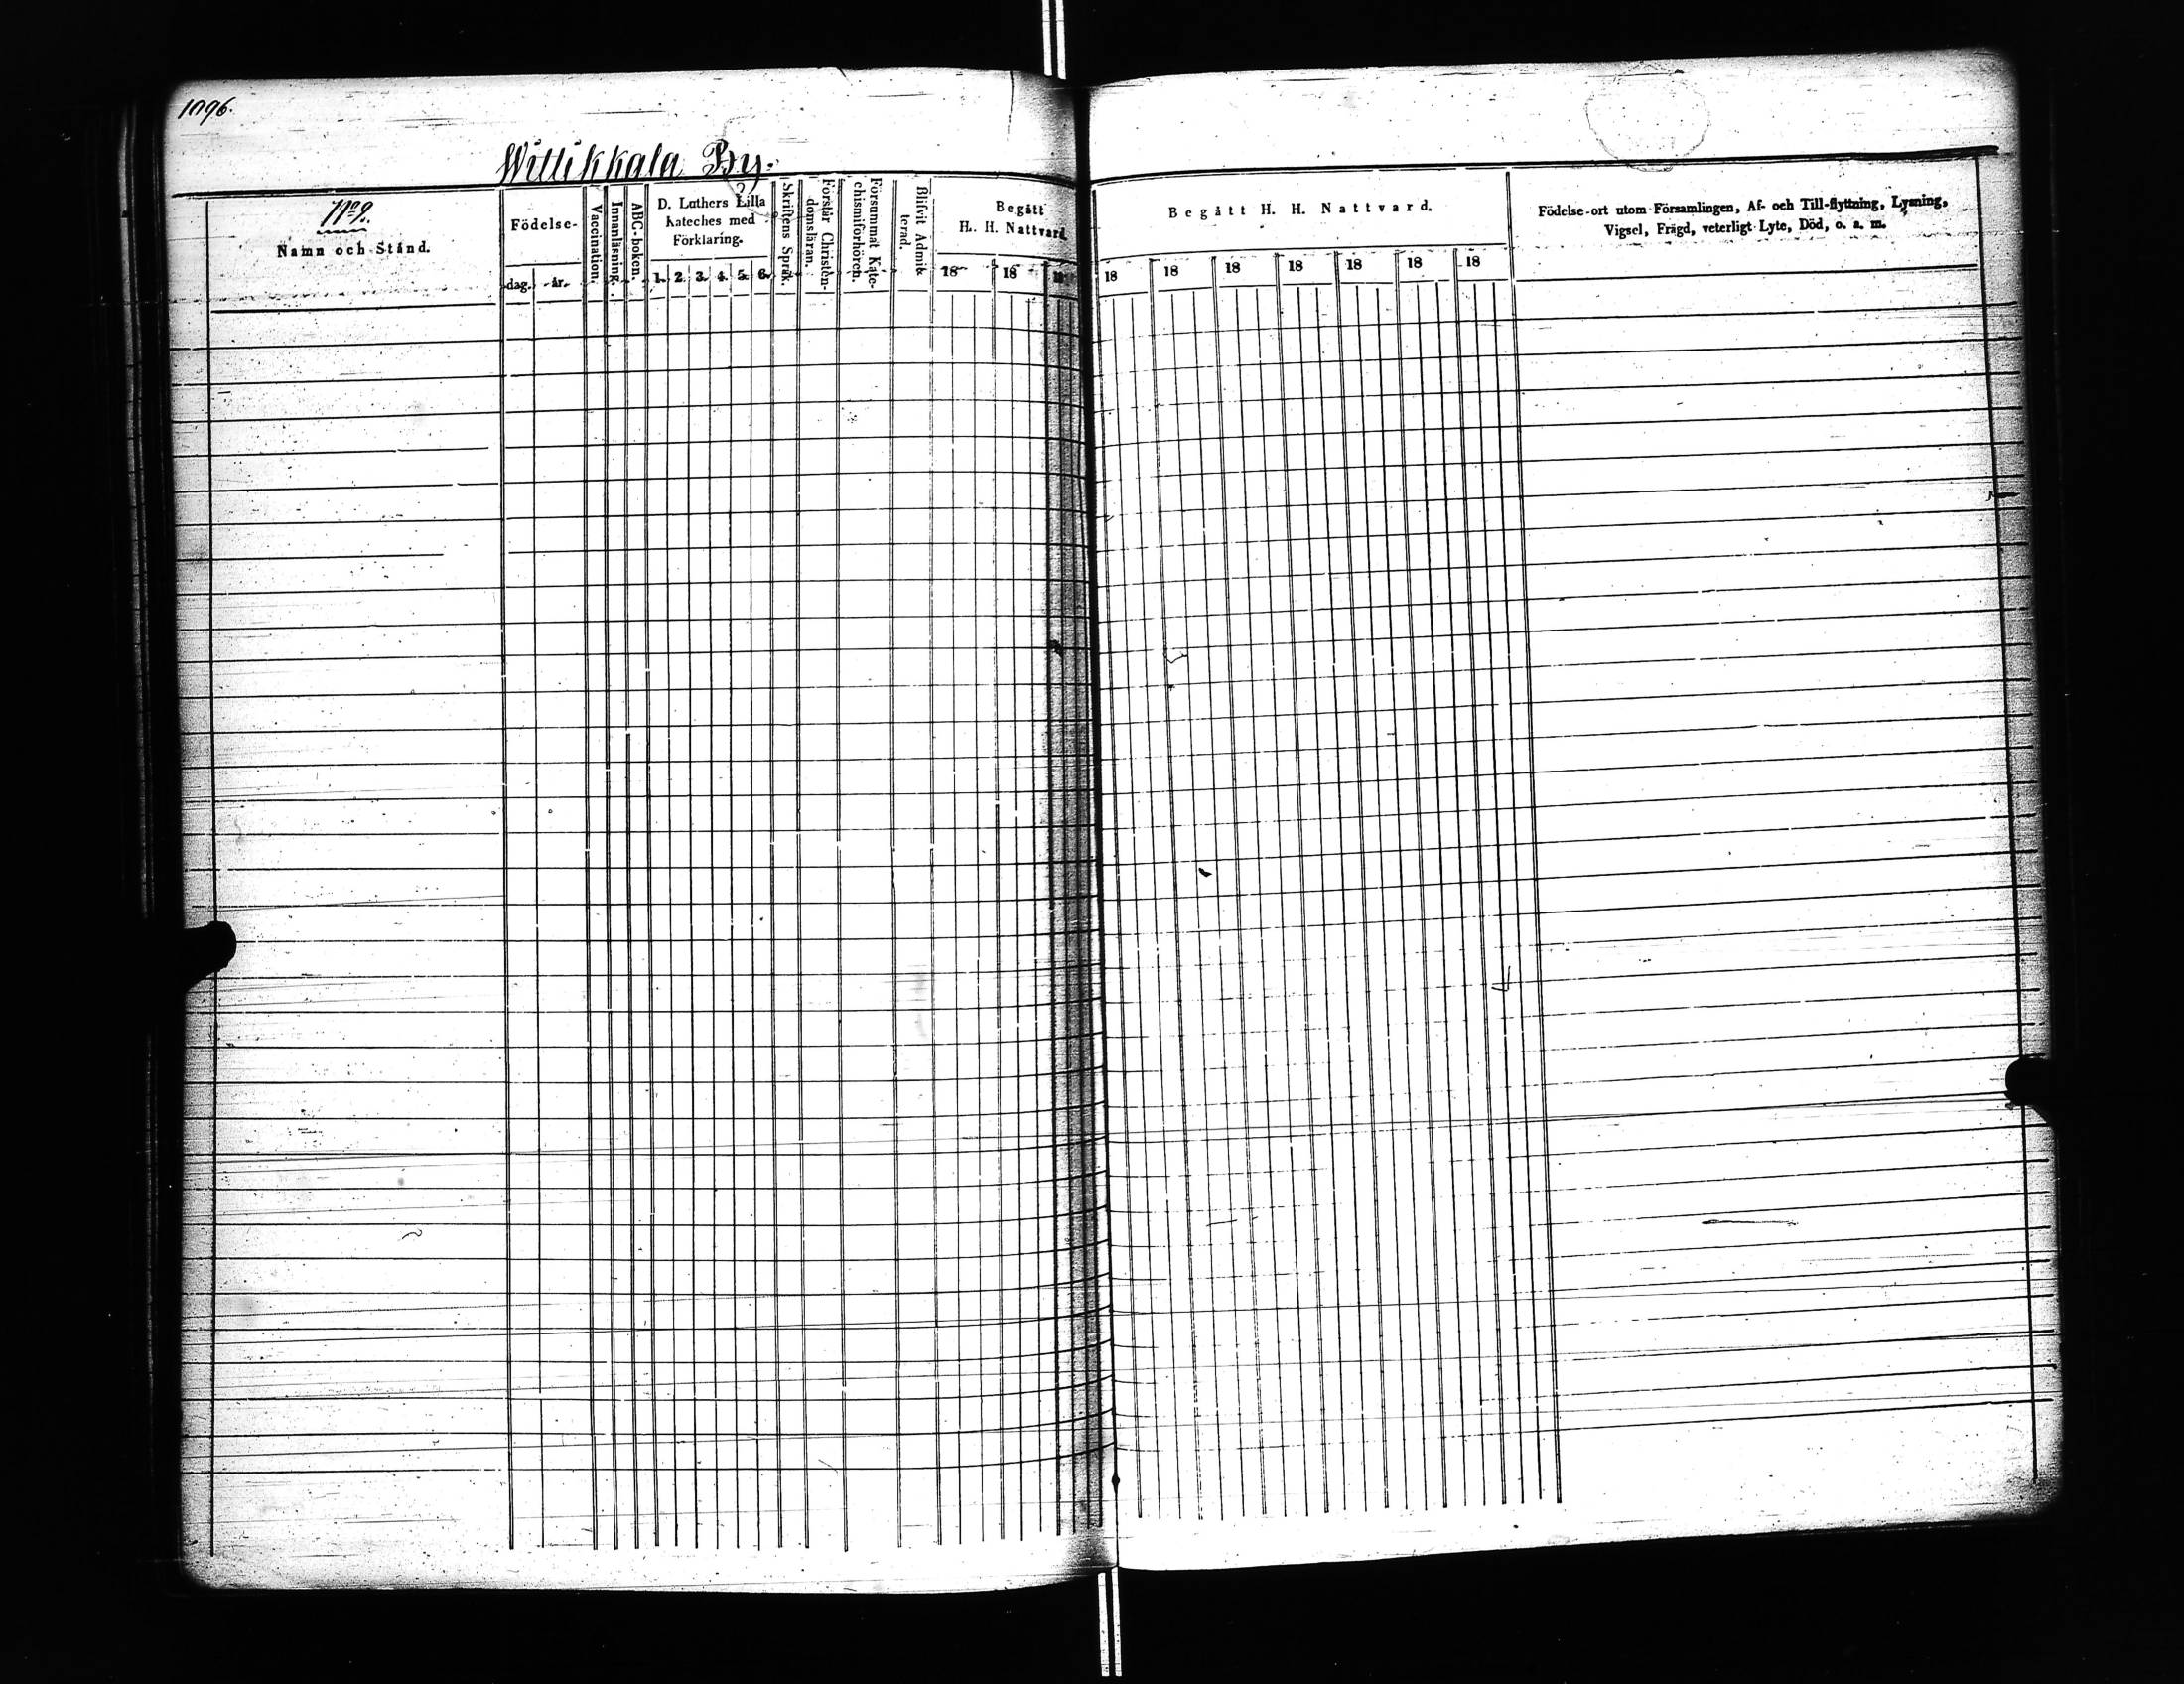 1096.
Wittikkala By.
No 9.
Namn och Stånd.
Födelse-
dag. år.
Vaccination.
Innanläsning.
ABC-boken.
D. Luthers Lilla
Kateches med
Förklaring.
1. 2. 3. 4. 5. 6.
Skriftens Språk.
Förstår Christen-
domsläran.
Försummat Kate-
chismiförhören.
Blifvit Admit-
terad.
Begått
H. H. Nattvard.
18 18 18
Begått H. H. Nattvard.
18 18 18 18 18 18 18
Födelse-ort utom Församlingen, Af- och Till-flyttning, Lysning,
Vigsel, Frägd, veterligt Lyte, Död, o. s. m.